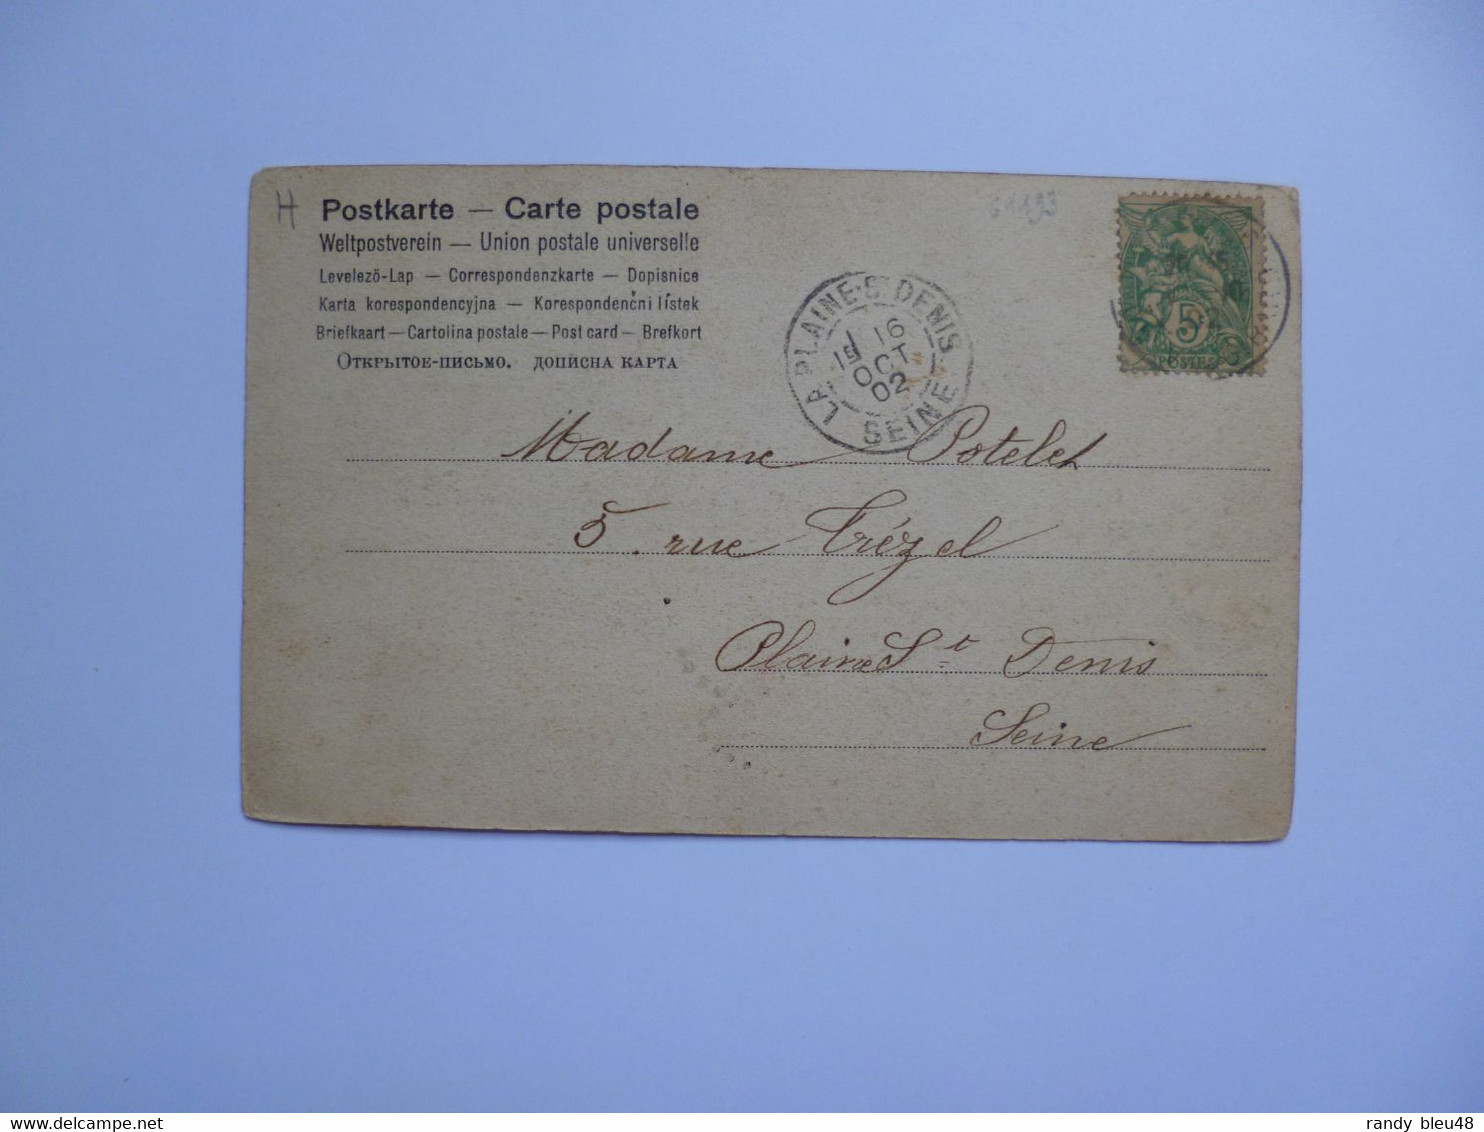 H
Postkarte — Carte postale
Weltpostverein — Union postale universelle
Levelező-Lap — Correspondenzkarte — Dopisnice
Karta korespondencyjna — Korespondenční lístek
Briefkaart — Cartolina postale — Post card — Brefkort
Открытое-письмо. дописна карта
LA PLAINE-ST DENIS
16
OCT
02
SEINE
5
POSTES
Madame Potelet
5 rue Trézel
Plaine St Denis
Seine
randy bleu48